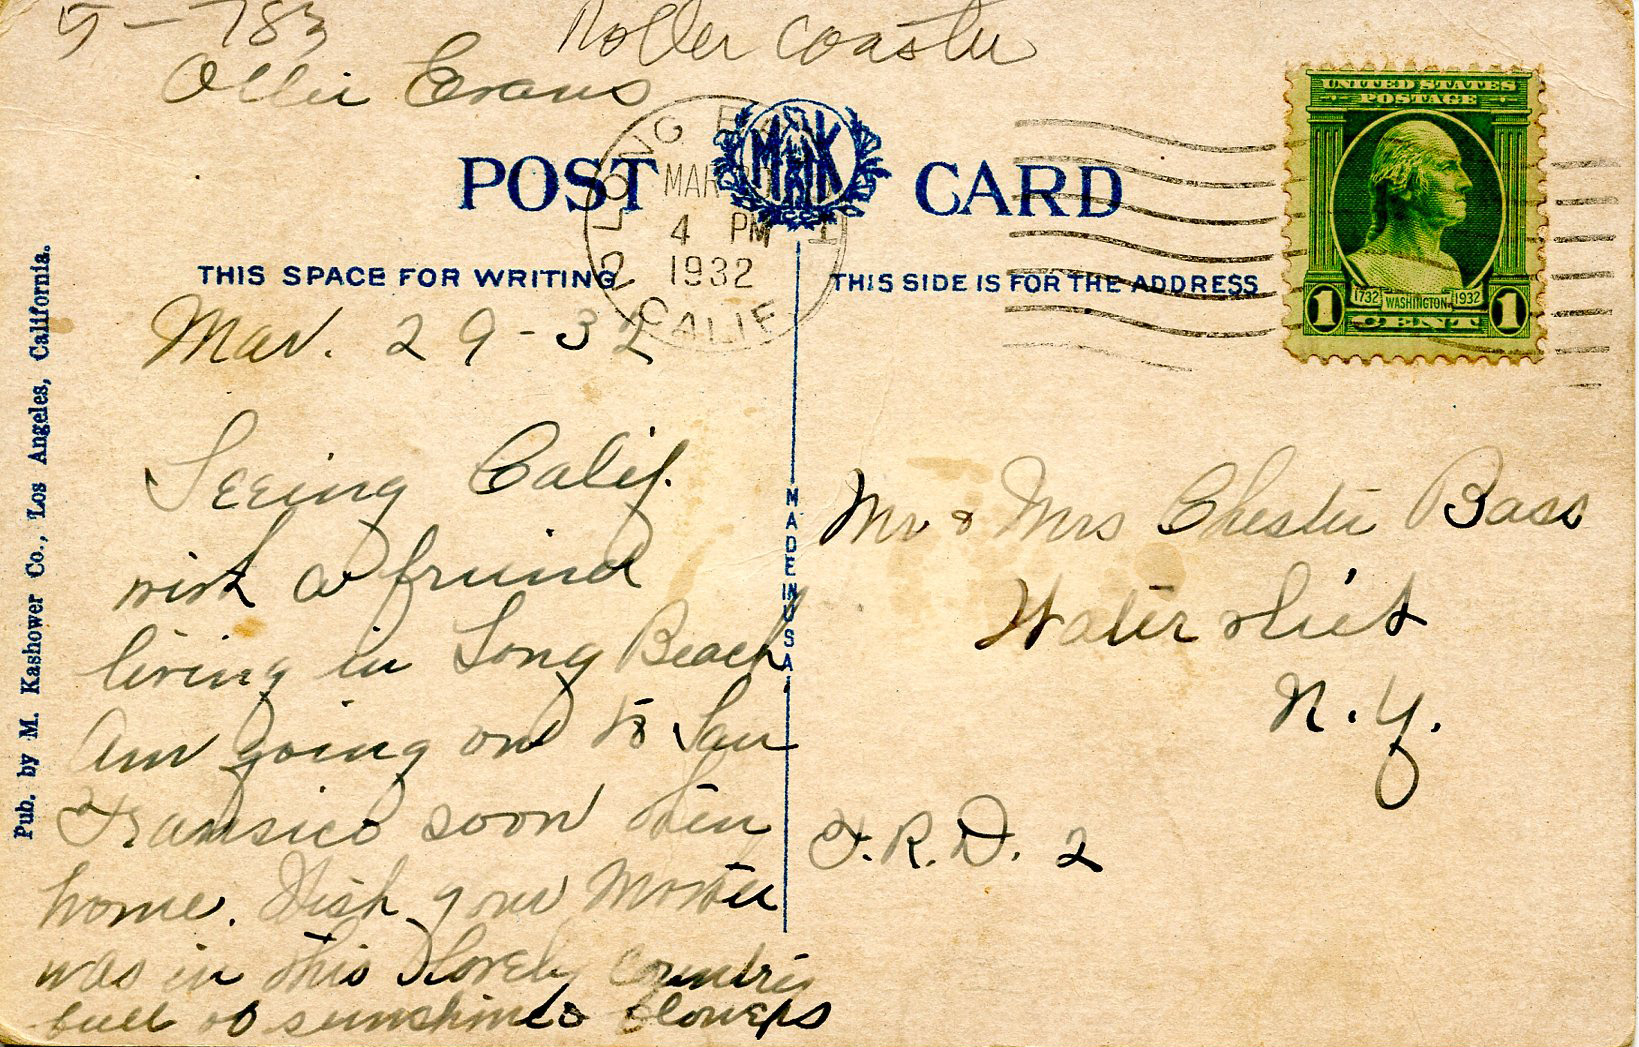 5-783
Roller Coaster
Ollie Evans
LONG BEACH
MAR
4 PM
1932
CALIF
POST CARD
MK
UNITED STATES
POSTAGE
1732 WASHINGTON 1932
1 CENT 1
THIS SPACE FOR WRITING
THIS SIDE IS FOR THE ADDRESS
Mar. 29-32
Seeing Calif.
with a friend
living in Long Beach
Am going on to San
Fransico soon then
home. Wish your Mother
was in this lovely country
full of sunshine & flowers
MADE IN USA
Mr & Mrs Chester Bass
Watervliet
N.Y.
F.R.D. 2
Pub. by M. Kashower Co., Los Angeles, California.